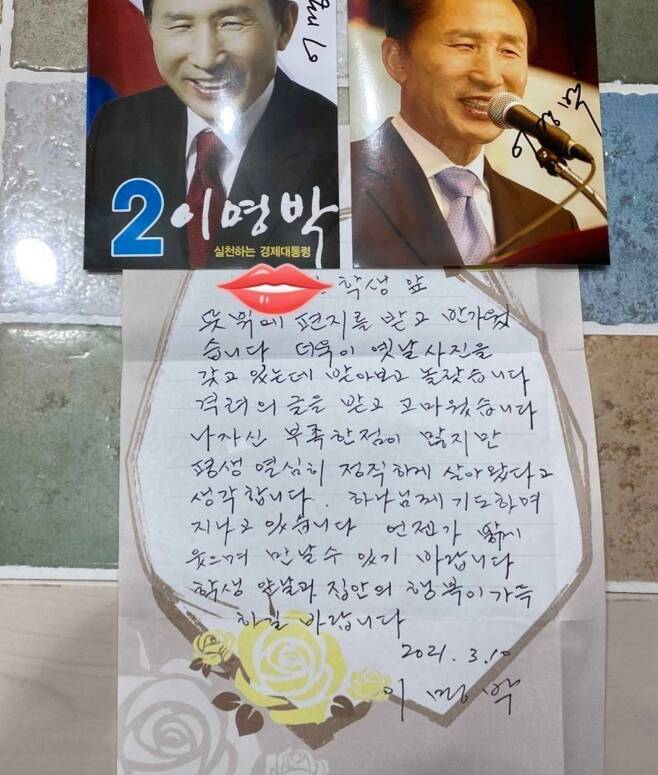 2 이명박
실천하는 경제대통령
이명박
학생 앞
뜻밖에 편지를 받고 반가웠
습니다 더욱이 옛날 사진을
갖고 있는데 받아보고 놀랐습니다
격려의 글을 받고 고마웠습니다
나 자신 부족한 점이 많지만
평생 열심히 정직하게 살아왔다고
생각합니다. 하나님께 기도하며
지내고 있습니다 언젠가 함께
웃으며 만날 수 있기 바랍니다
학생 앞날과 집안의 행복이 가득
하길 바랍니다
2021. 3. 10
이명박